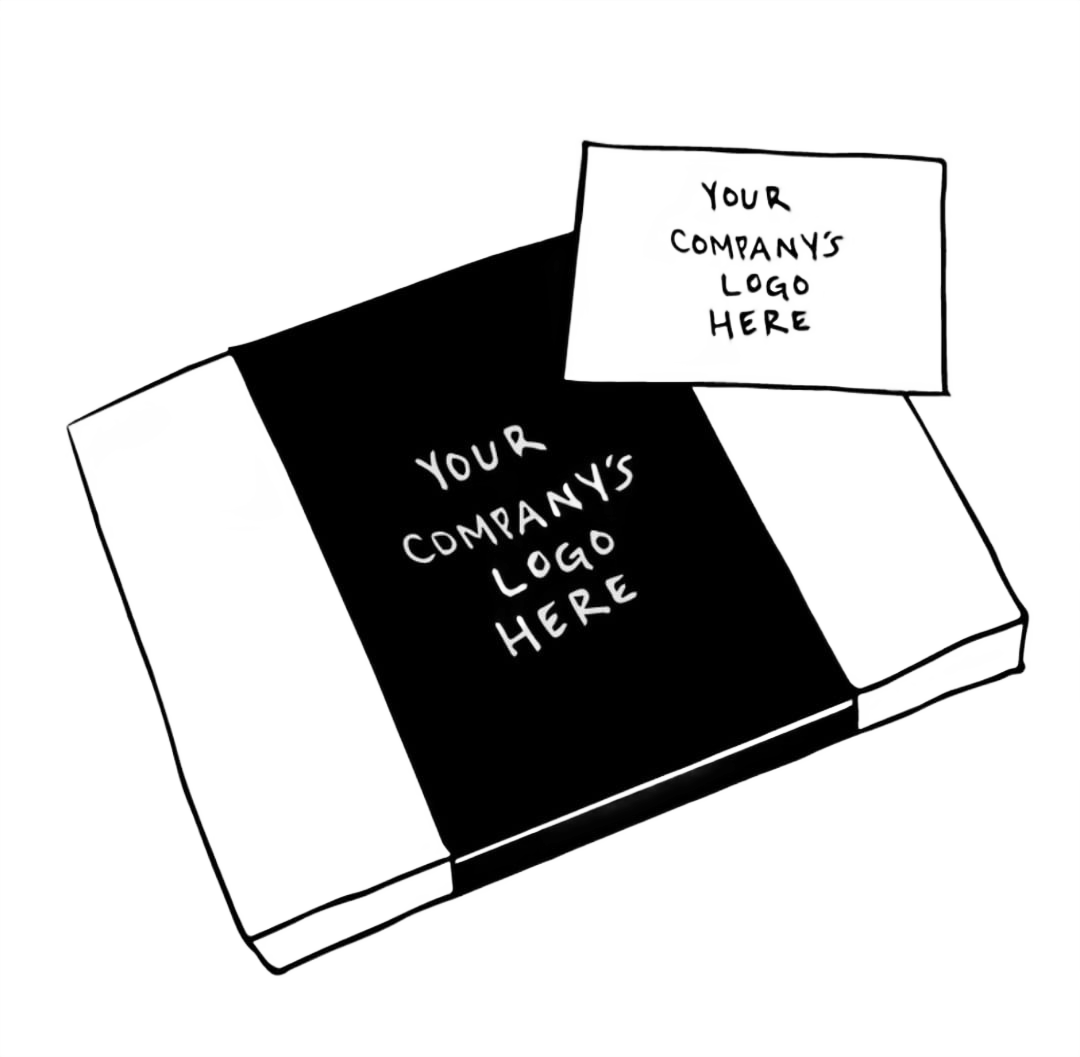 YOUR
COMPANY'S
LOGO
HERE
YOUR
COMPANY'S
LOGO
HERE